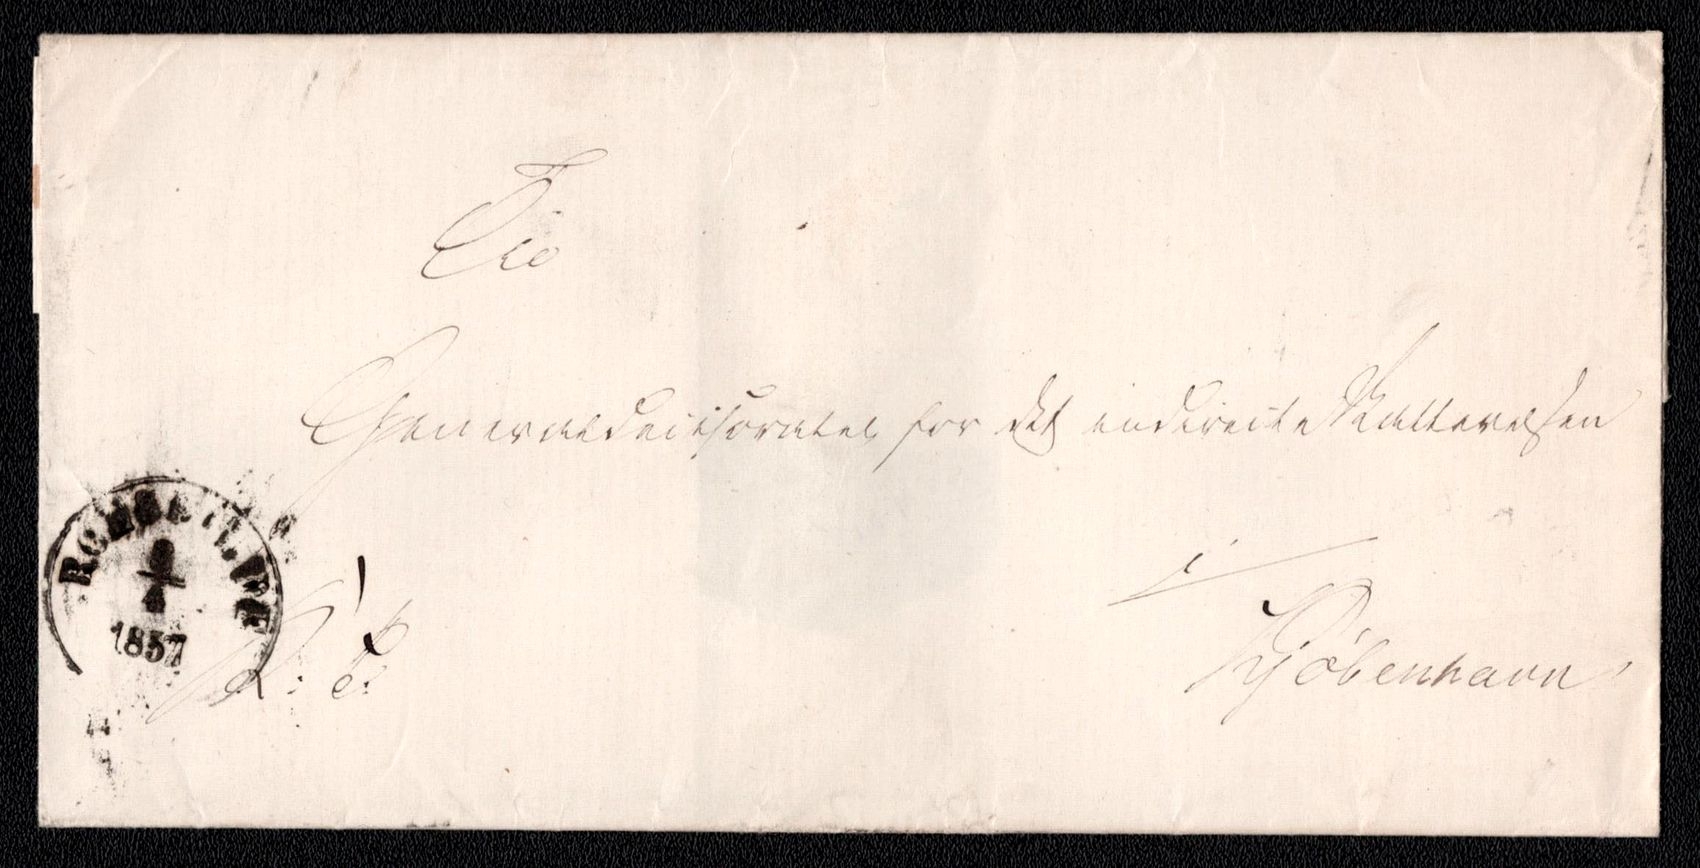 Til
Generaldecisoratet for det indirecte Skattevæsen
i
Kjöbenhavn
K. T.
1857